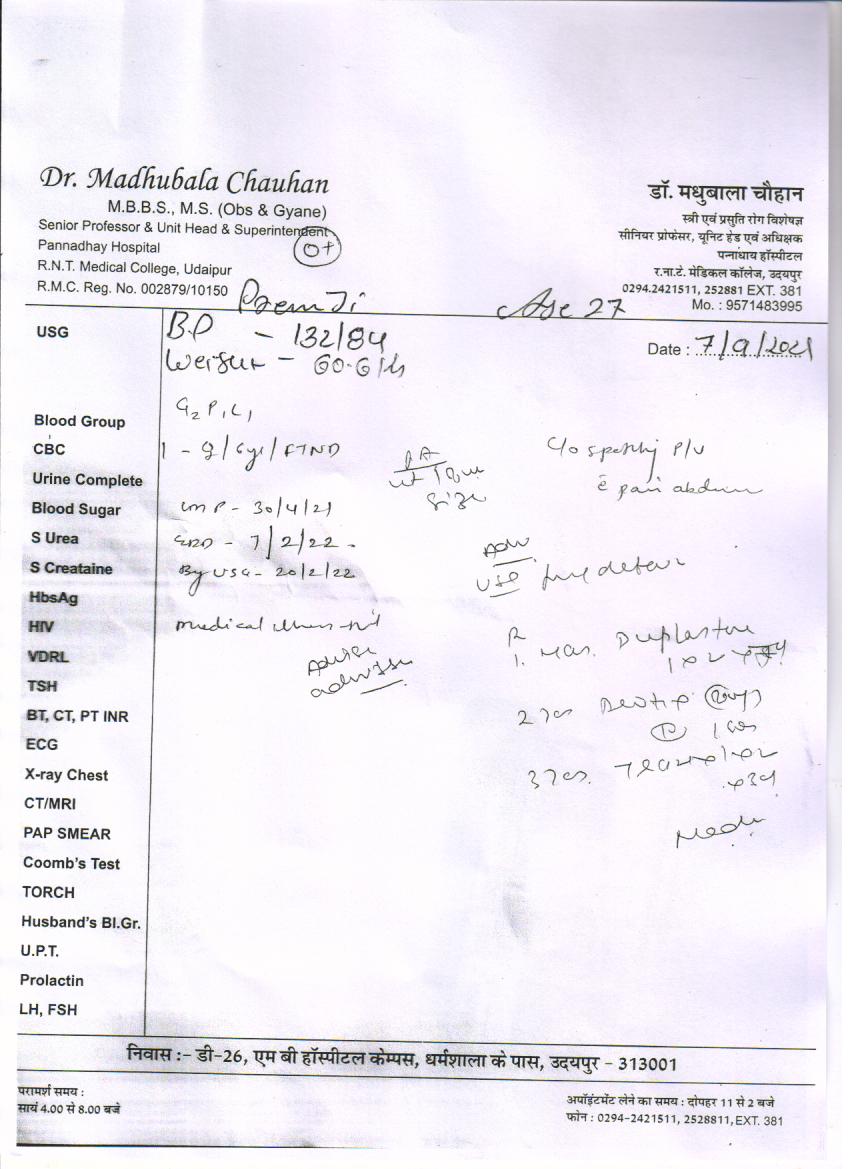 Dr. Madhubala Chauhan
M.B.B.S., M.S. (Obs & Gyane)
Senior Professor & Unit Head & Superintendent
Pannadhay Hospital
R.N.T. Medical College, Udaipur
R.M.C. Reg. No. 002879/10150
O+
डॉ. मधुबाला चौहान
स्त्री एवं प्रसुति रोग विशेषज्ञ
सीनियर प्रोफेसर, यूनिट हेड एवं अधिक्षक
पन्नाधाय हॉस्पीटल
र.ना.टे. मेडिकल कॉलेज, उदयपुर
0294.2421511, 252881 EXT. 381
Mo. : 9571483995
Age 27
B.P - 132/84
60.6
Date : 7/9/2021
G2 P1 L1
1 - FTND
C/o spotting P/V
PA
size
LMP - 30/4/21
EDD - 7/2/22
By USG - 20/2/22
Adv
medical illness
Advise
admission
R
1.
2
3
USG
Blood Group
CBC
Urine Complete
Blood Sugar
S Urea
S Creataine
HbsAg
HIV
VDRL
TSH
BT, CT, PT INR
ECG
X-ray Chest
CT/MRI
PAP SMEAR
Coomb's Test
TORCH
Husband's Bl.Gr.
U.P.T.
Prolactin
LH, FSH
निवास :- डी-26, एम बी हॉस्पीटल केम्पस, धर्मशाला के पास, उदयपुर - 313001
परामर्श समय :
सायं 4.00 से 8.00 बजे
अपॉइंटमेंट लेने का समय : दोपहर 11 से 2 बजे
फोन : 0294-2421511, 2528811, EXT. 381